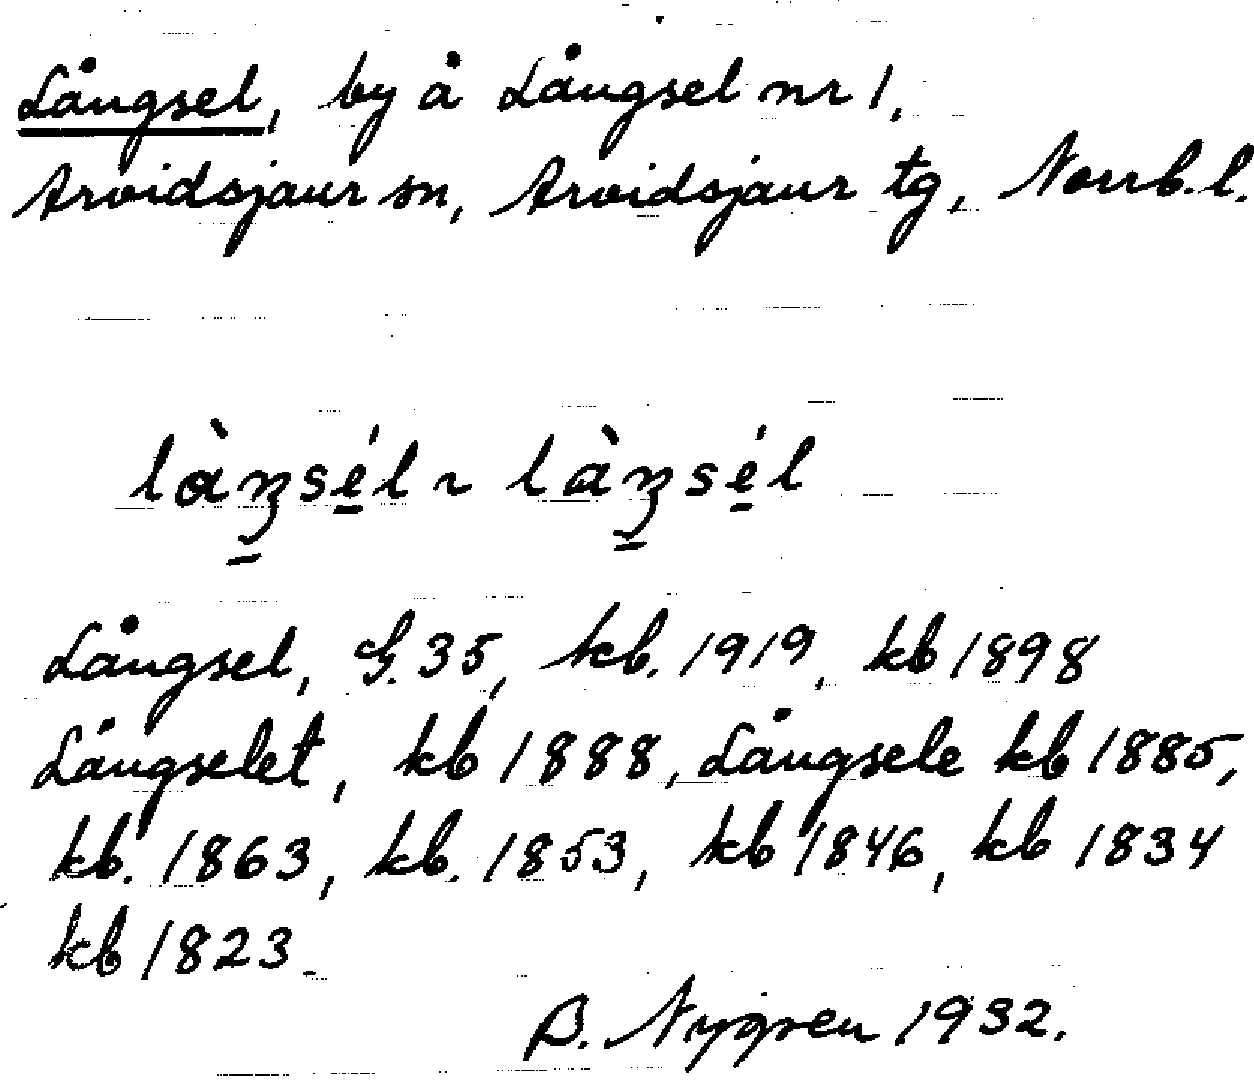 Långsel, by å Långsel nr 1,
Arvidsjaur sn, Arvidsjaur tg, Norrb. l.
làŋsél ~ làŋsél
Långsel, G. 35, kb. 1919, kb 1898
Långselet, kb 1888, Långsele kb 1885,
kb. 1863, kb. 1853, kb 1846, kb 1834
kb 1823.
B. Nygren 1932.